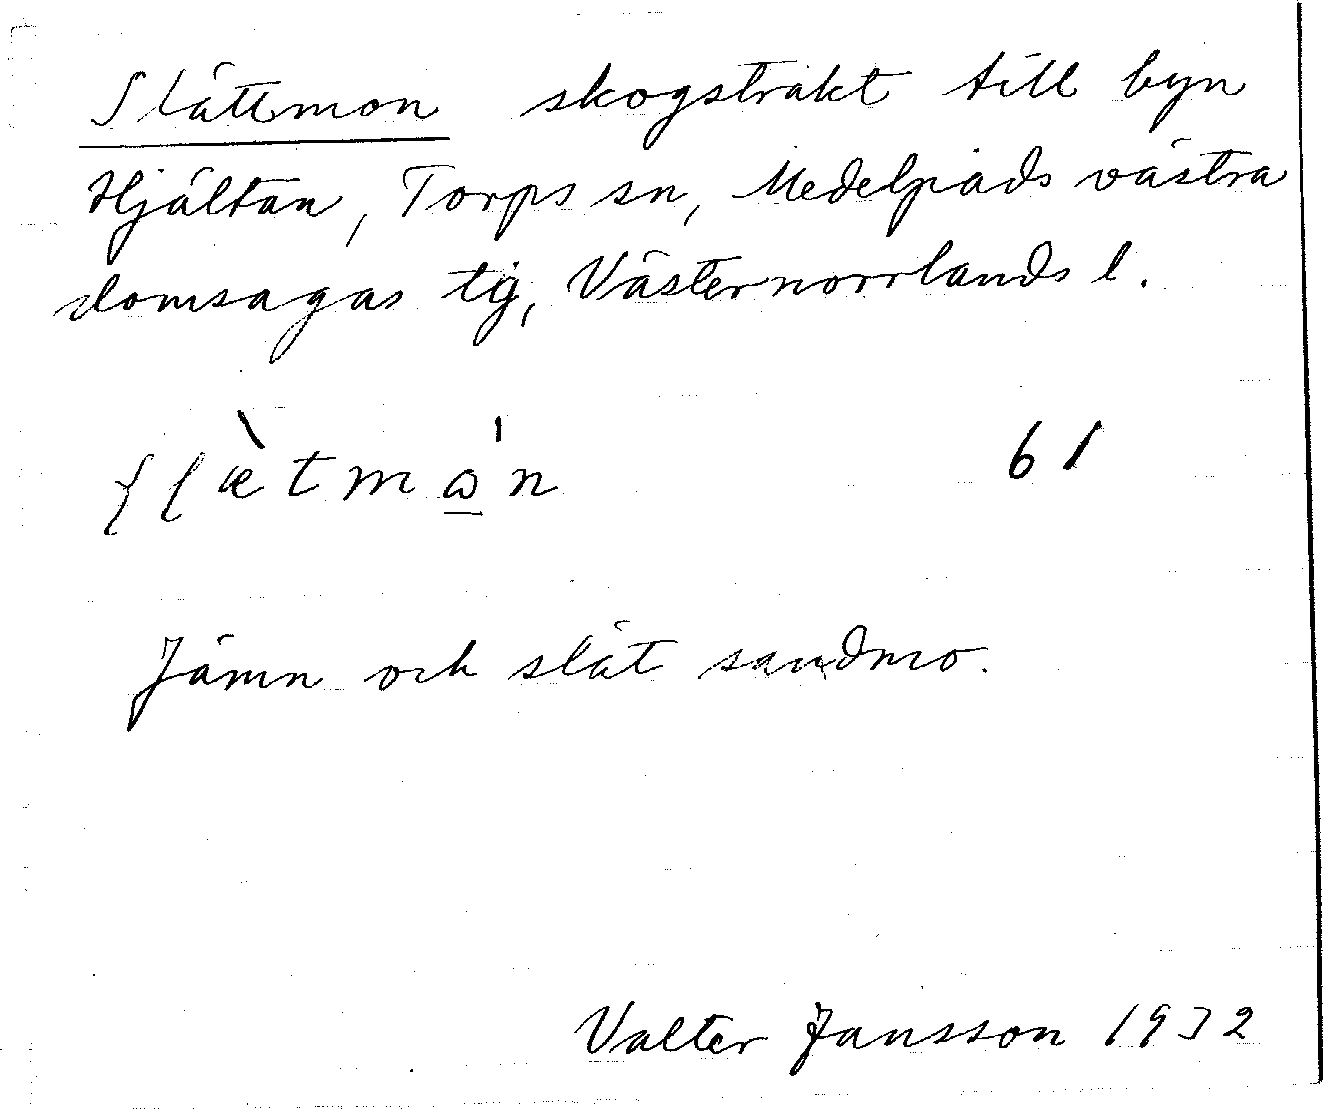 Slättmon skogstrakt till byn
Hjältan, Torps sn, Medelpads västra
domsagas tg, Västernorrlands l.
ʃlæ̀tmω̲̍n 61
Jämn och slät sandmo.
Valter Jansson 1932